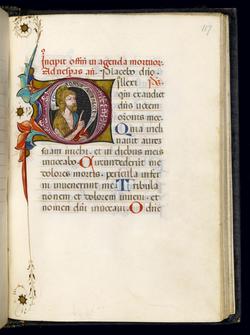 117
Incipit offm in agenda mortuor.
Ad vespas an. Placebo dno.
ilexi ps.
qm exaudiet
dns vocem
oronis mee.
Quia incli
navit aurez
suam michi. et in diebus meis
invocabo. Circundederut me
dolores mortis. pericula infer
ni invenerunt me. Tribula
tionem et dolorem inveni. et
nomen dni invocavi. O dne